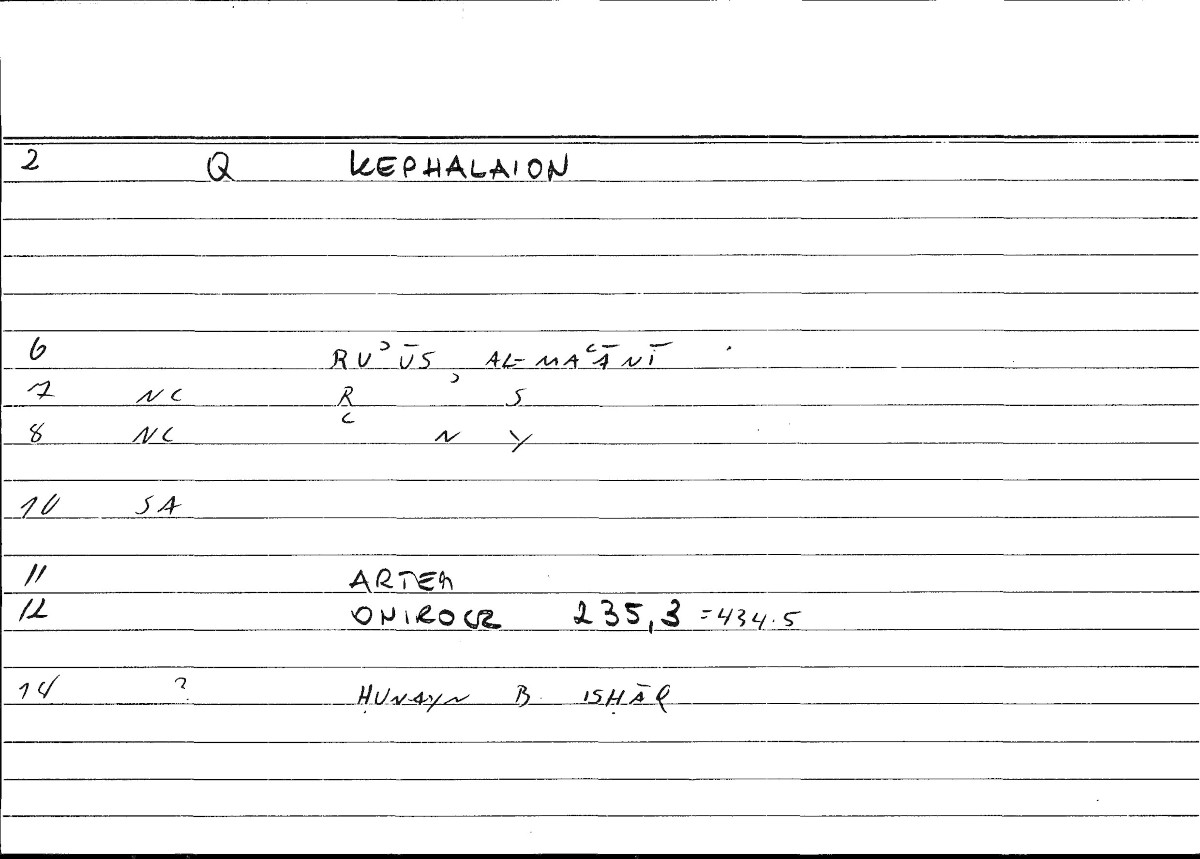 2 Q KEPHALAION
6 RUʾŪS, AL-MAʿĀNĪ
7 NC R ʾ S
8 NC ʿ N Y
10 SA
11 ARTEM
12 ONIROCR 235,3 =434.5
14 ? ḤUNAYN B. ISḤĀQ